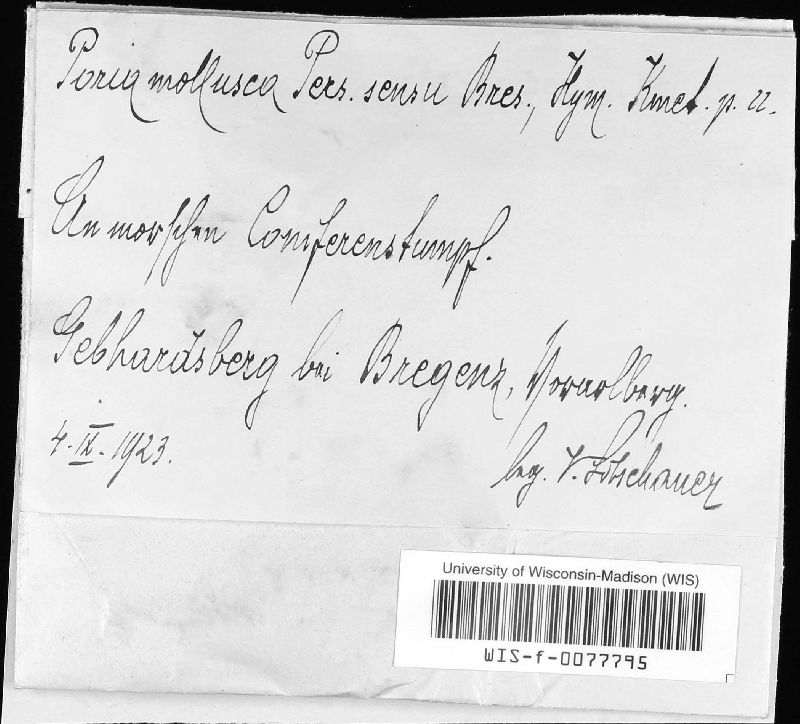 Poria mollusca Pers. sensu Bres., Hym. Kmet. p. 22.
An morschen Coniferenstumpf.
Gebhardsberg bei Bregenz, Vorarlberg.
4.IX.1923.
leg. V. Litschauer
University of Wisconsin-Madison (WIS)
WIS-f-0077795